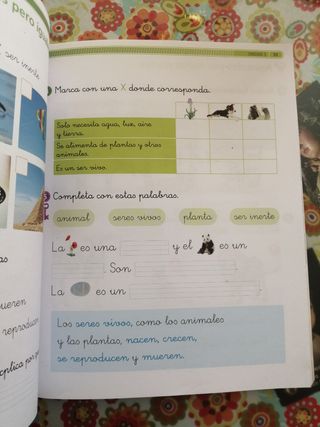 s pero igua
ser inerte
Marca con una X donde corresponda.
Solo necesita agua, luz, aire
y tierra.
Se alimenta de plantas y otros
animales.
Es un ser vivo.
Completa con estas palabras.
animal seres vivos planta ser inerte
La es una y el es un
. Son .
La es un .
as
Los seres vivos, como los animales
y las plantas, nacen, crecen,
se reproducen y mueren.
ueren
reproducen
xplica por q